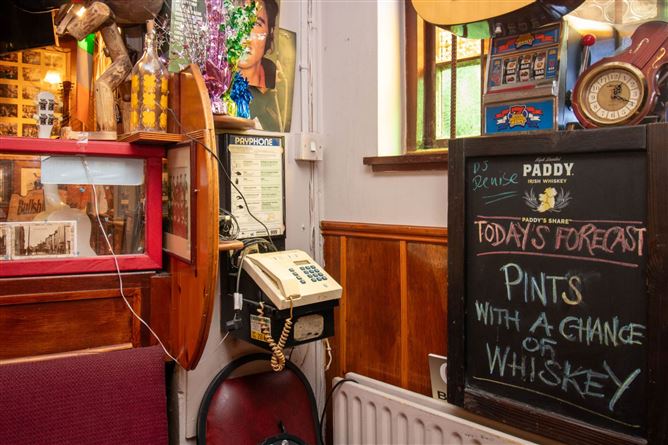 PAYPHONE
Bullsh
DJ
Denise
High Quality
PADDY
IRISH WHISKEY
PADDY'S SHARE
TODAY'S FORECAST
PINTS
WITH A CHANCE
OF
WHISKEY